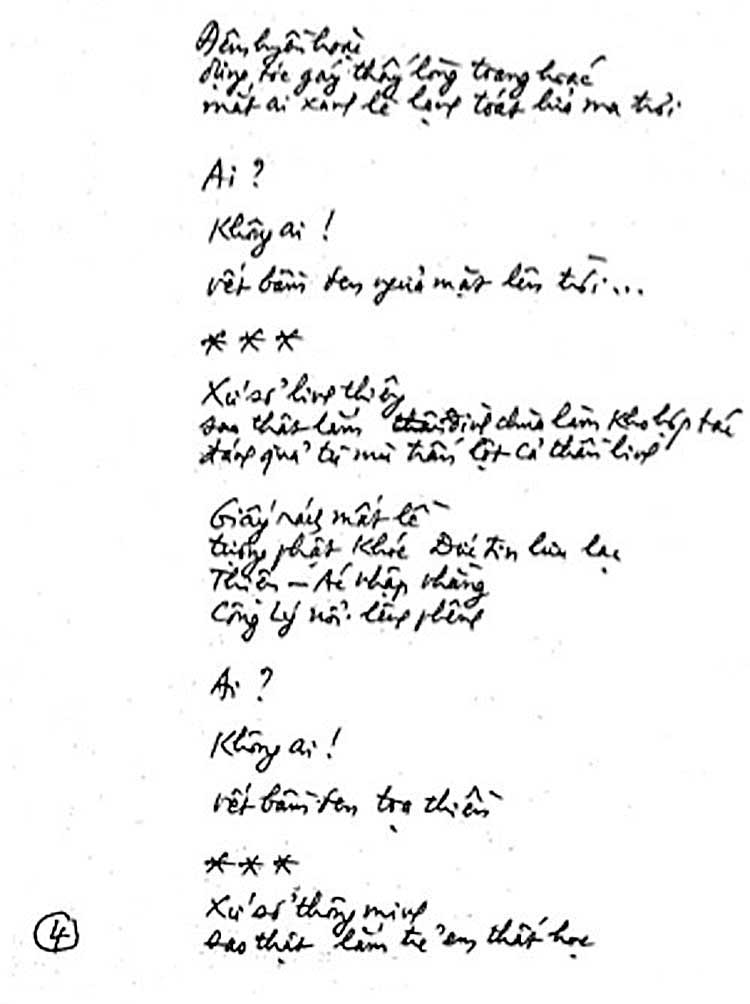 Đêm huyền hoặc
dựng tóc gáy thấy lòng toang hoác
mắt ai xanh lè lạnh toát lửa ma trơi
Ai ?
Không ai !
vết bầm đen ngửa mặt lên trời...
* * *
Xứ sở linh thiêng
sao thật lắm đình chùa làm kho hợp tác
đánh quả tù mù trấn lột cả thần linh
Giấy rách mất lề
tượng phật khóc Đức Tin lưu lạc
Thiện – Ác nhập nhằng
Công Lý nổi lênh phênh
Ai ?
Không ai !
vết bầm đen tọa thiền
* * *
Xứ sở thông minh
④ sao thật lắm trẻ em thất học